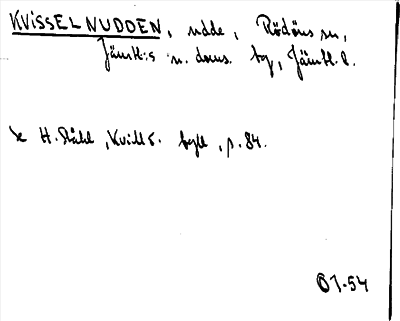 KVISSELNUDDEN, udde, Rödöns sn,
Jämtl:s n. doms. tg, Jämtl. l.
H. Ståhl, Kvill o. byll, p. 84.
OJ-54